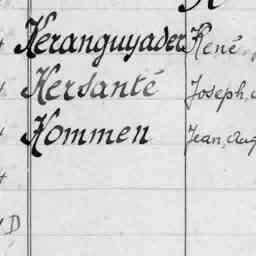 Keranguyader René
Kersanté Joseph,
Kommen Jean, Aug
D